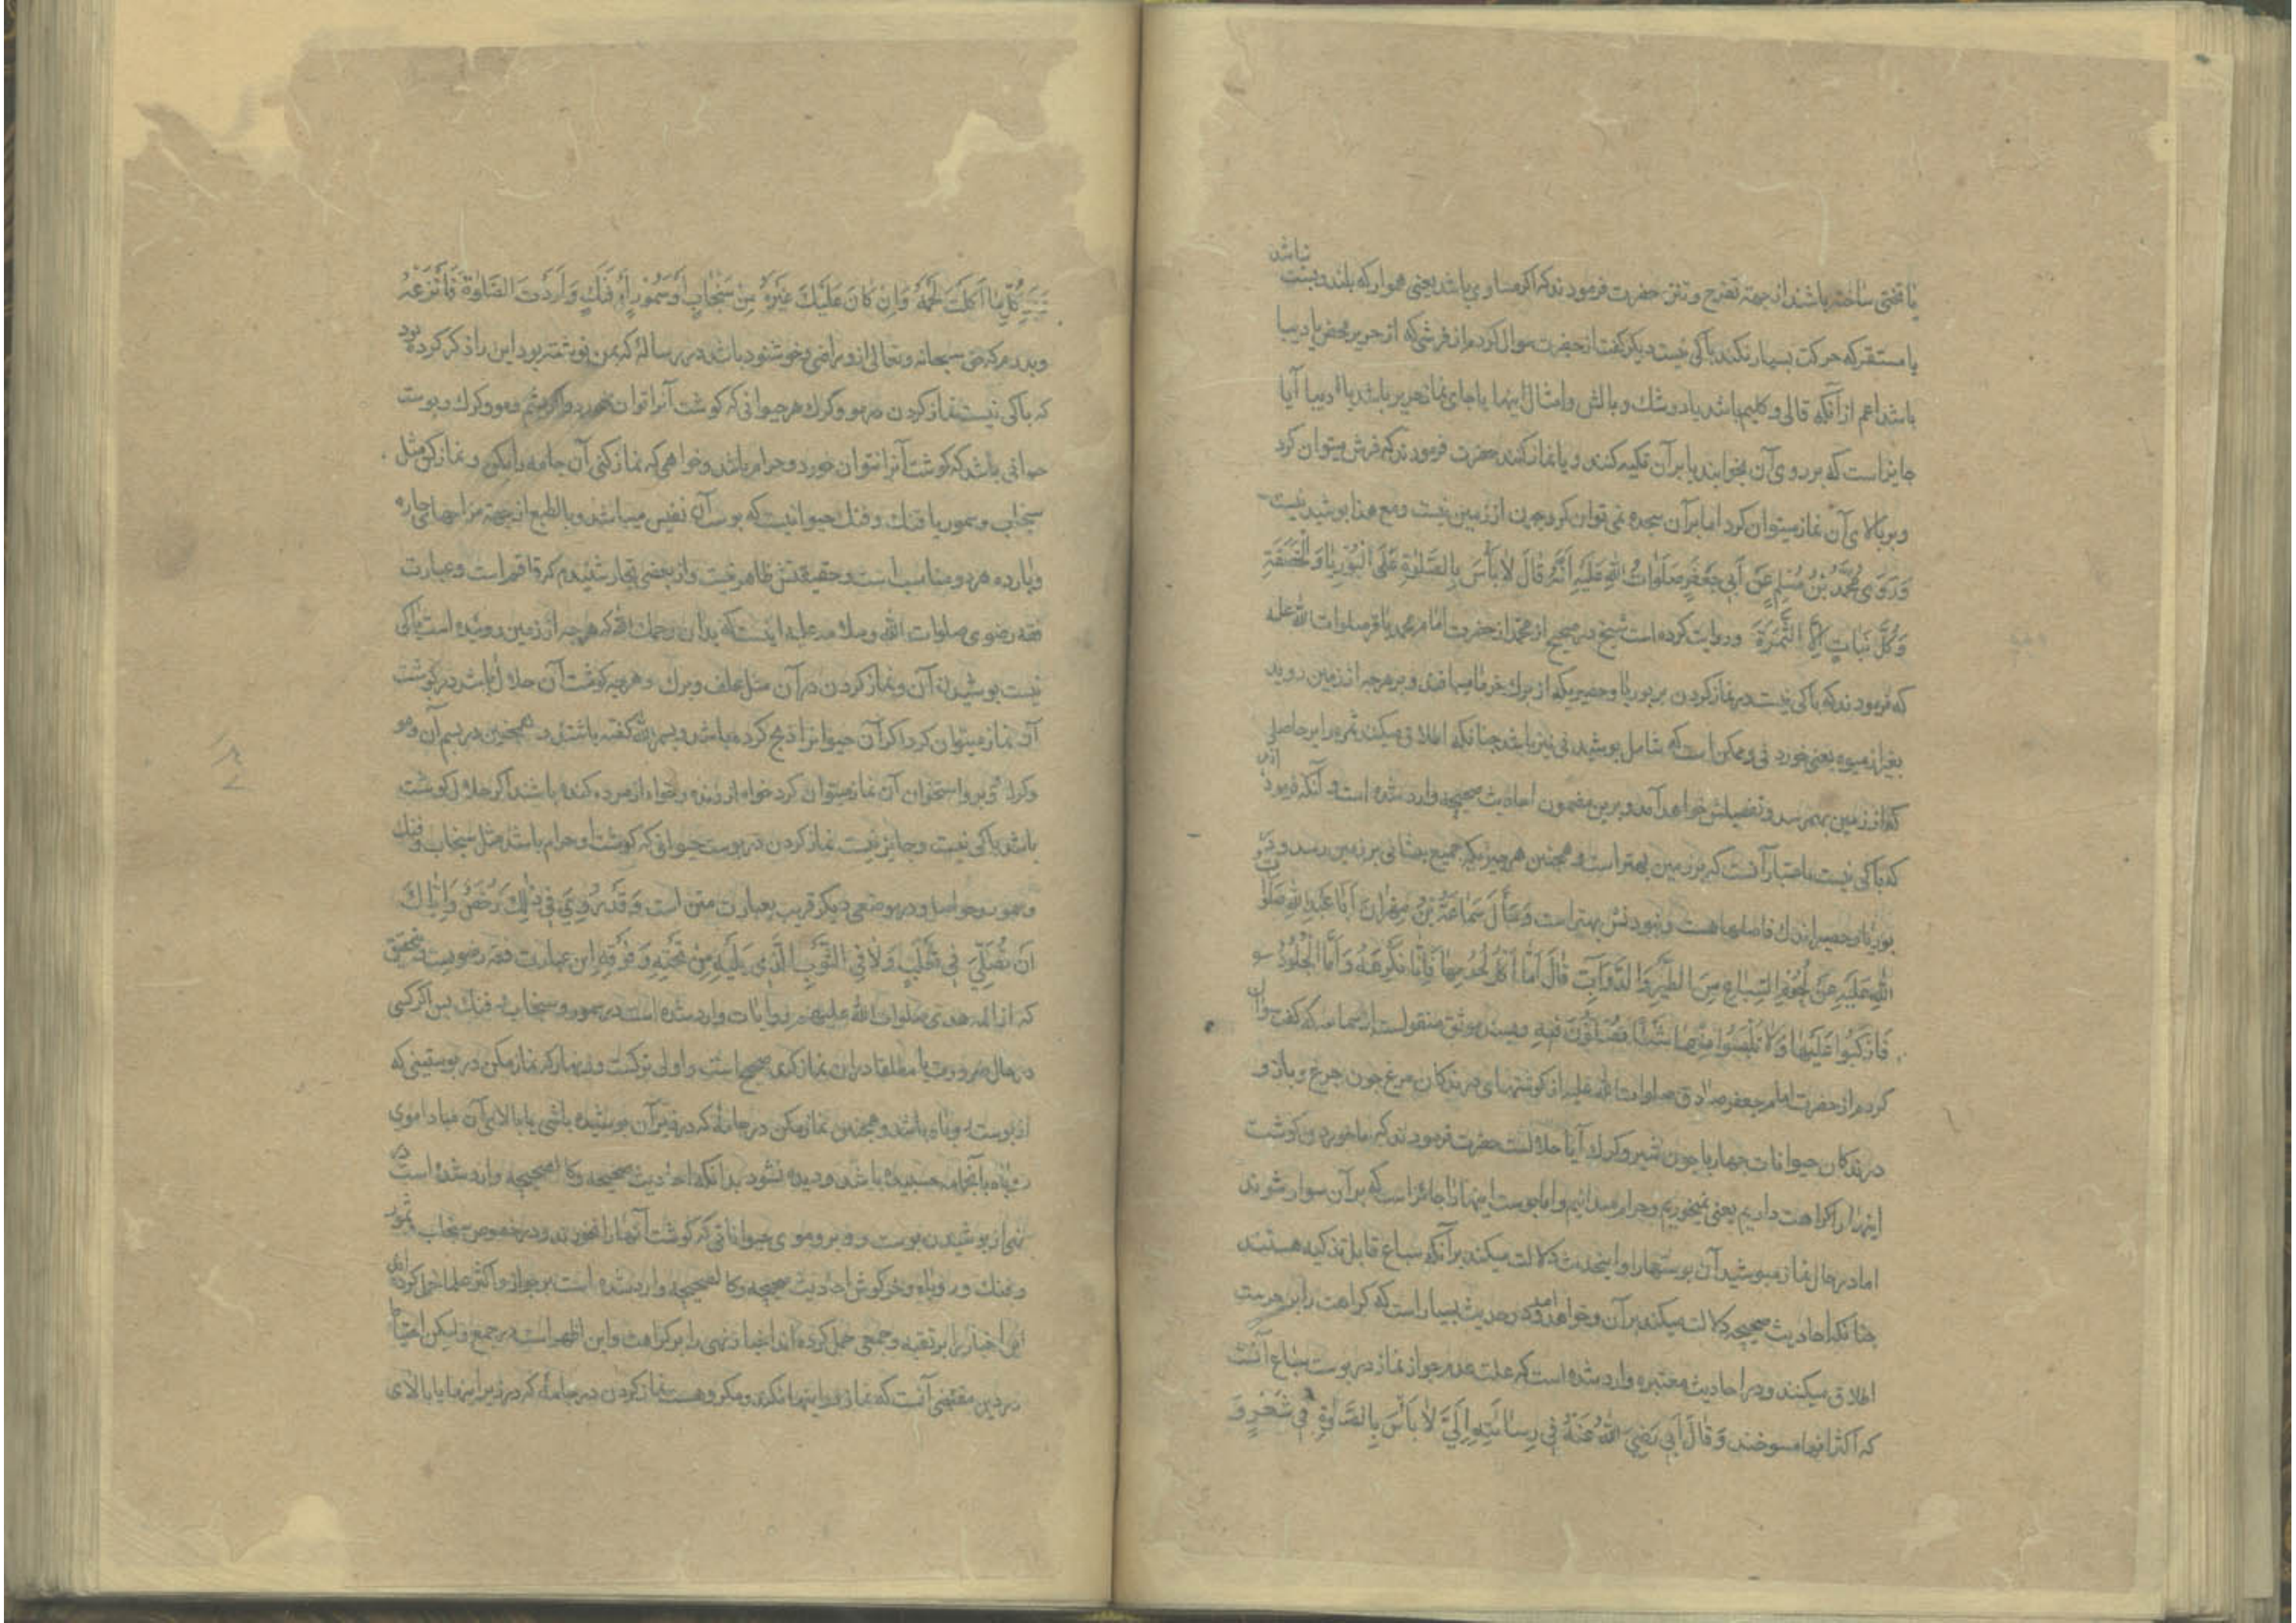 نباشد
یا تختی ساخته باشند از جهة تفرج و تنزه حضرت فرمودند که اکر مساوی باشد یعنی هموار که بلند و پست
یا مستقر که حرکت بسیار نکند باکی نیست دیکر کفت از حضرت سوال کردم از فرشی که از حریر محض یا دیبا
باشد اعم از آنکه قالی و کلیم باشد یا دوشك و بالش و امثال اینها یا جای نماز حریر باشد یا دیبا آیا
جایز است که بر روی آن بخوابند یا بر آن تکیه کنند و یا نماز کنند حضرت فرمودند که فرش میتوان کرد
و بر بالای آن نماز میتوان کرد اما بر آن سجده نمی توان کرد چون از زمین نیست و مع هذا پوشیدنیست
وَرَوَی مُحَمَّدُ بْنُ مُسْلِمٍ عَنْ أَبِي جَعْفَرٍ صَلَوَاتُ اللهِ عَلَيْهِ أَنَّهُ قَالَ لَا بَأْسَ بِالصَّلٰوةِ عَلَى الْبُورِيَا وَالْخَصَفَةِ
وَكُلِّ نَبَاتٍ إِلَّا الثَّمَرَةَ و روایت کرده است شیخ در صحیح از محمد از حضرت امام محمد باقر صلوات الله علیه
که فرمودند که باکی نیست در نماز کردن بر بوریا و حصیر یکه از برك خرما میبافند و بر هر چه از زمین روید
بغیر از میوه یعنی خوردنی و ممکن است که شامل پوشیدنی نیز باشد چنانکه اطلاق میکنند ثمره را بر حاصلی
که از زمین بهم رسد و تفصیلش خواهد آمد و برین مضمون احادیث صحیحه وارد شده است و آنکه فرمود
که باکی نیست باعتبار آنست که بر زمین بهتر است و همچنین هر چیزیکه جمیع پیشانی بر زمین رسد و در
بوریا و حصیر اندك فاصلها هست و نبودنش بهتر است وَسَأَلَ سَمَاعَةُ بْنُ مِهْرَانَ أَبَا عَبْدِ اللهِ صَلَوَاتُ
اللهِ عَلَيْهِ عَنْ لُحُومِ السِّبَاعِ مِنَ الطَّيْرِ وَالدَّوَابِّ قَالَ أَمَّا أَكْلُ لُحُومِهَا فَإِنَّا نَكْرَهُهُ وَأَمَّا الْجُلُودُ
فَارْكَبُوا عَلَيْهَا وَلَا تَلْبَسُوا مِنْهَا شَيْئًا تُصَلُّونَ فِيهِ و بسند موثق منقولست از سماعه که کفت سوال
کردم از حضرت امام جعفر صادق صلوات الله علیه از کوشتهای درندکان مرغ چون چرغ و باز و
درندکان حیوانات چهار پا چون شیر و کرك آیا حلالست حضرت فرمودند که ما خوردن کوشت
اینها را کراهت داریم یعنی نمیخوریم و حرام میدانیم و اما پوست اینها را جائز است که بر آن سوار شوند
اما در حال نماز مپوشید آن پوستها را و اینحدیث دلالت میکند بر آنکه سباع قابل تذکیه هستند
چنانکه احادیث صحیحه دلالت میکند بر آن و خواهد آمد و در حدیث بسیار است که کراهت را بر حرمت
اطلاق میکنند و در احادیث معتبره وارد شده است که علت عدم جواز نماز در پوست سباع آنست
که اکثر اینها مسوخند وَقَالَ أَبِي رَضِيَ اللهُ عَنْهُ فِي رِسَالَتِهِ إِلَيَّ لَا بَأْسَ بِالصَّلٰوةِ فِي شَعْرٍ وَ
وَبَرِ كُلِّ مَا أَكَلْتَ لَحْمَهُ وَإِنْ كَانَ عَلَيْكَ غَيْرُهُ مِنْ سِنْجَابٍ أَوْ سَمُّورٍ أَوْ فَنَكٍ وَأَرَدْتَ الصَّلٰوةَ فَانْزَعْهُ
و پدرم که حق سبحانه و تعالی از و راضی و خوشنود باشد در رسالۀ که بمن نوشته بود این را ذکر کرده بود
که باکی نیست نماز کردن در مو و کرك هر حیوانی که کوشت آنرا توان خورد و اکر پشم و مو و کرك و پوست
حیوانی باشد که کوشت آنرا نتوان خورد و حرام باشد و خواهی که نماز کنی آن جامه را بکن و نماز کن مثل
سنجاب و سمور یا فنك و فنك حیوانیست که پوست آن نفیس میباشد و بالطبع از جهة مزاجهای حاره
و بارده هر دو مناسب است و حقیقتش ظاهر نیست و از بعضی تجار شنیدم که قاقم است و عبارت
فقه رضوی صلوات الله و سلامه علیه اینست که بدان رحمك الله که هر چه از زمین روییده است باکی
نیست پوشیدن آن و نماز کردن در آن مثل علف و برك و هر چه کوشت آن حلال باشد در کوشت
آن نماز میتوان کرد اکر آن حیوانرا ذبح کرده باشند و بسم الله کفته باشند و همچنین در پشم آن و مو
و کرك و پر و استخوان آن نماز میتوان کرد خواه از زنده و خواه از مرده کنده باشند اکر حلال کوشت
باشد باکی نیست و جایز نیست نماز کردن در پوست حیوانی که کوشت او حرام باشد مثل سنجاب و فنك
و سمور و حواصل و در موضعی دیکر قریب بعبارت متن است وَقَدْ رُوِيَ فِي ذٰلِكَ رُخَصٌ وَإِيَّاكَ
أَنْ تُصَلِّيَ فِي ثَعْلَبٍ وَلَا فِي الثَّوْبِ الَّذِي يَلِيهِ مِنْ تَحْتِهِ وَفَوْقِهِ این عبارت فقه رضویست و بتحقیق
که از ائمه هدی صلوات الله علیهم روایات وارد شده است در سمور و سنجاب و فنك پس اکر کسی
در حال ضرورت یا مطلقا در ان نماز کرد صحیح است و اولی ترکست و زنهار که نماز مکن در پوستینی که
از پوست روباه باشد و همچنین نماز مکن در جامۀ که در زیر آن پوشیده باشی یا بالای آن مبادا موی
روباه بآنجامه چسبیده باشد و دیده نشود بدانکه احادیث صحیحه و کالصحیحه وارد شده است در
نهی از پوشیدن پوست و وبر و موی حیواناتی که کوشت آنها را نخورند و در خصوص سنجاب و سمور
و فنك و روباه و خرکوش احادیث صحیحه و کالصحیحه وارد شده است بر جواز و اکثر علما حمل کرده اند
این اخبار را بر تقیه و جمعی حمل کرده اند اخبار نهی را بر کراهت و این اظهر است در جمع و لیکن احتیاط
در دین مقتضی آنست که نماز در اینها نکنند و مکروهست نماز کردن در جامۀ که در زیر اینها یا بالای